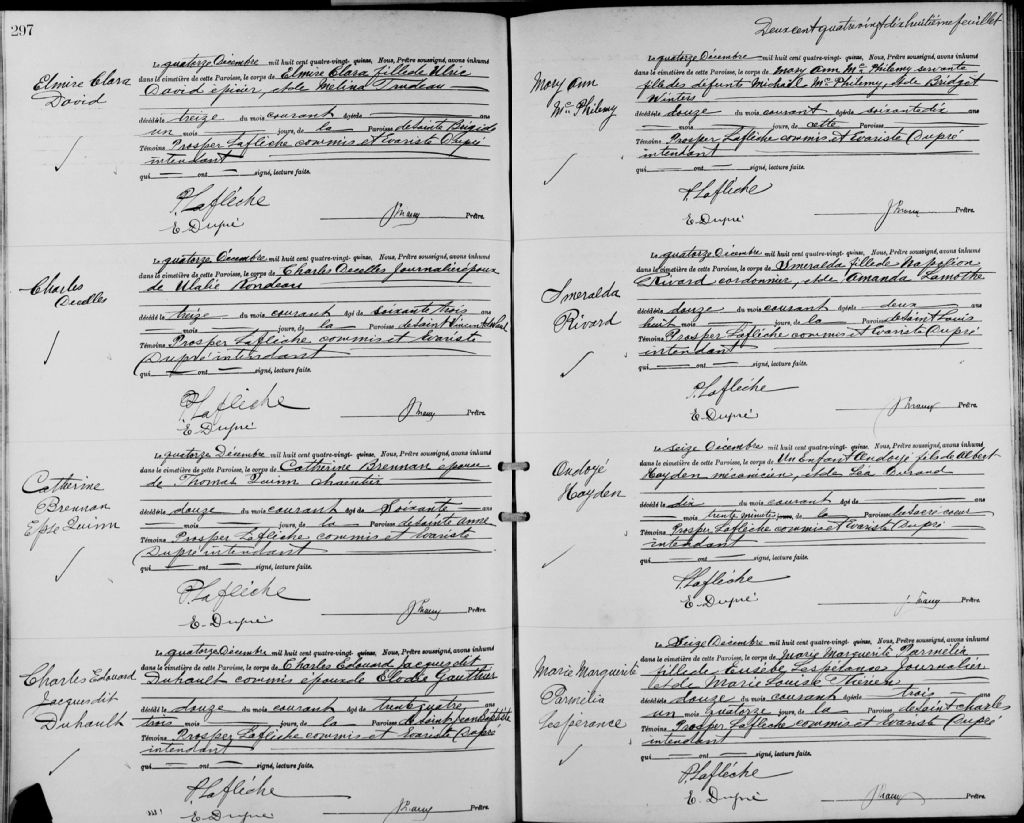 297
Elmire Clara
David
Le quatorze Décembre mil huit cent quatre-vingt- quinze, Nous, Prêtre soussigné, avons inhumé
dans le cimetière de cette Paroisse, le corps de Elmire Clara fille de Ulric
David épicier, et de Melina Trudeau
décédé le treize du mois courant âgé de ans
un mois jours, de la Paroisse de Sainte Brigide
Témoins Prosper Laflèche commis et Evariste Dupré
intendant
qui ont signé, lecture faite.
P. Laflèche
E. Dupré
Prêtre.
Charles
Decelles
Le quatorze Décembre mil huit cent quatre-vingt- quinze, Nous, Prêtre soussigné, avons inhumé
dans le cimetière de cette Paroisse, le corps de Charles Decelles Journalier époux
de Ulalie Rondeau
décédé le treize du mois courant âgé de soixante trois ans
mois jours, de la Paroisse de Saint Vincent de Paul
Témoins Prosper Laflèche commis et Evariste
Dupré intendant
qui ont signé, lecture faite.
P. Laflèche
E. Dupré
Prêtre.
Catherine
Brennan
Epse Quinn
Le quatorze Décembre mil huit cent quatre-vingt- quinze, Nous, Prêtre soussigné, avons inhumé
dans le cimetière de cette Paroisse, le corps de Catherine Brennan épouse
de Thomas Quinn
décédé le douze du mois courant âgé de Soixante ans
mois jours, de la Paroisse de Sainte Anne
Témoins Prosper Laflèche commis et Evariste
Dupré intendant
qui ont signé, lecture faite.
P. Laflèche
E. Dupré
Prêtre.
Charles Edouard
Jacques dit
Duhault
Le quatorze Décembre mil huit cent quatre-vingt- quinze, Nous, Prêtre soussigné, avons inhumé
dans le cimetière de cette Paroisse, le corps de Charles Edouard Jacques dit
Duhault commis époux de Elodie Gauthier
décédé le douze du mois courant âgé de trente quatre ans
trois mois jours, de la Paroisse de Saint Jean Baptiste
Témoins Prosper Laflèche commis et Evariste Dupré
intendant
qui ont signé, lecture faite.
P. Laflèche
E. Dupré
Prêtre.
Deux cent quatre vingt dix huitième feuillet
Mary Ann
Mc Philemy
Le quatorze Décembre mil huit cent quatre-vingt- quinze, Nous, Prêtre soussigné, avons inhumé
dans le cimetière de cette Paroisse, le corps de Mary Ann Mc Philemy servante
fille des défunts Michael Mc Philemy, et de Bridget
Winters
décédé le douze du mois courant âgé de soixante dix ans
mois jours, de cette Paroisse
Témoins Prosper Laflèche commis et Evariste Dupré
intendant
qui ont signé, lecture faite.
P. Laflèche
E. Dupré
Prêtre.
Smeralda
Rivard
Le quatorze Décembre mil huit cent quatre-vingt- quinze, Nous, Prêtre soussigné, avons inhumé
dans le cimetière de cette Paroisse, le corps de Smeralda fille de Napoléon
Rivard cordonnier, et de Amanda Lamothe
décédé le douze du mois courant âgé de deux ans
huit mois jours, de la Paroisse de Saint Louis
Témoins Prosper Laflèche commis et Evariste Dupré
intendant
qui ont signé, lecture faite.
P. Laflèche
E. Dupré
Prêtre.
Ondoyé
Hayden
Le seize Décembre mil huit cent quatre-vingt- quinze, Nous, Prêtre soussigné, avons inhumé
dans le cimetière de cette Paroisse, le corps de Un Enfant Ondoyé fils de Albert
Hayden mécanicien, et de Léa Durand
décédé le dix du mois courant âgé de ans
mois trente minutes jours, de la Paroisse du Sacré coeur
Témoins Prosper Laflèche commis et Evariste Dupré
intendant
qui ont signé, lecture faite.
P. Laflèche
E. Dupré
Prêtre.
Marie Marguerite
Parmélia
Lespérance
Le Seize Décembre mil huit cent quatre-vingt- quinze, Nous, Prêtre soussigné, avons inhumé
dans le cimetière de cette Paroisse, le corps de Marie Marguerite Parmélia
fille de Eusèbe Lespérance Journalier
et de Marie Louise
décédé le douze du mois courant âgé de trois ans
un mois quatorze jours, de la Paroisse de Saint Charles
Témoins Prosper Laflèche commis et Evariste Dupré
intendant
qui ont signé, lecture faite.
P. Laflèche
E. Dupré
Prêtre.